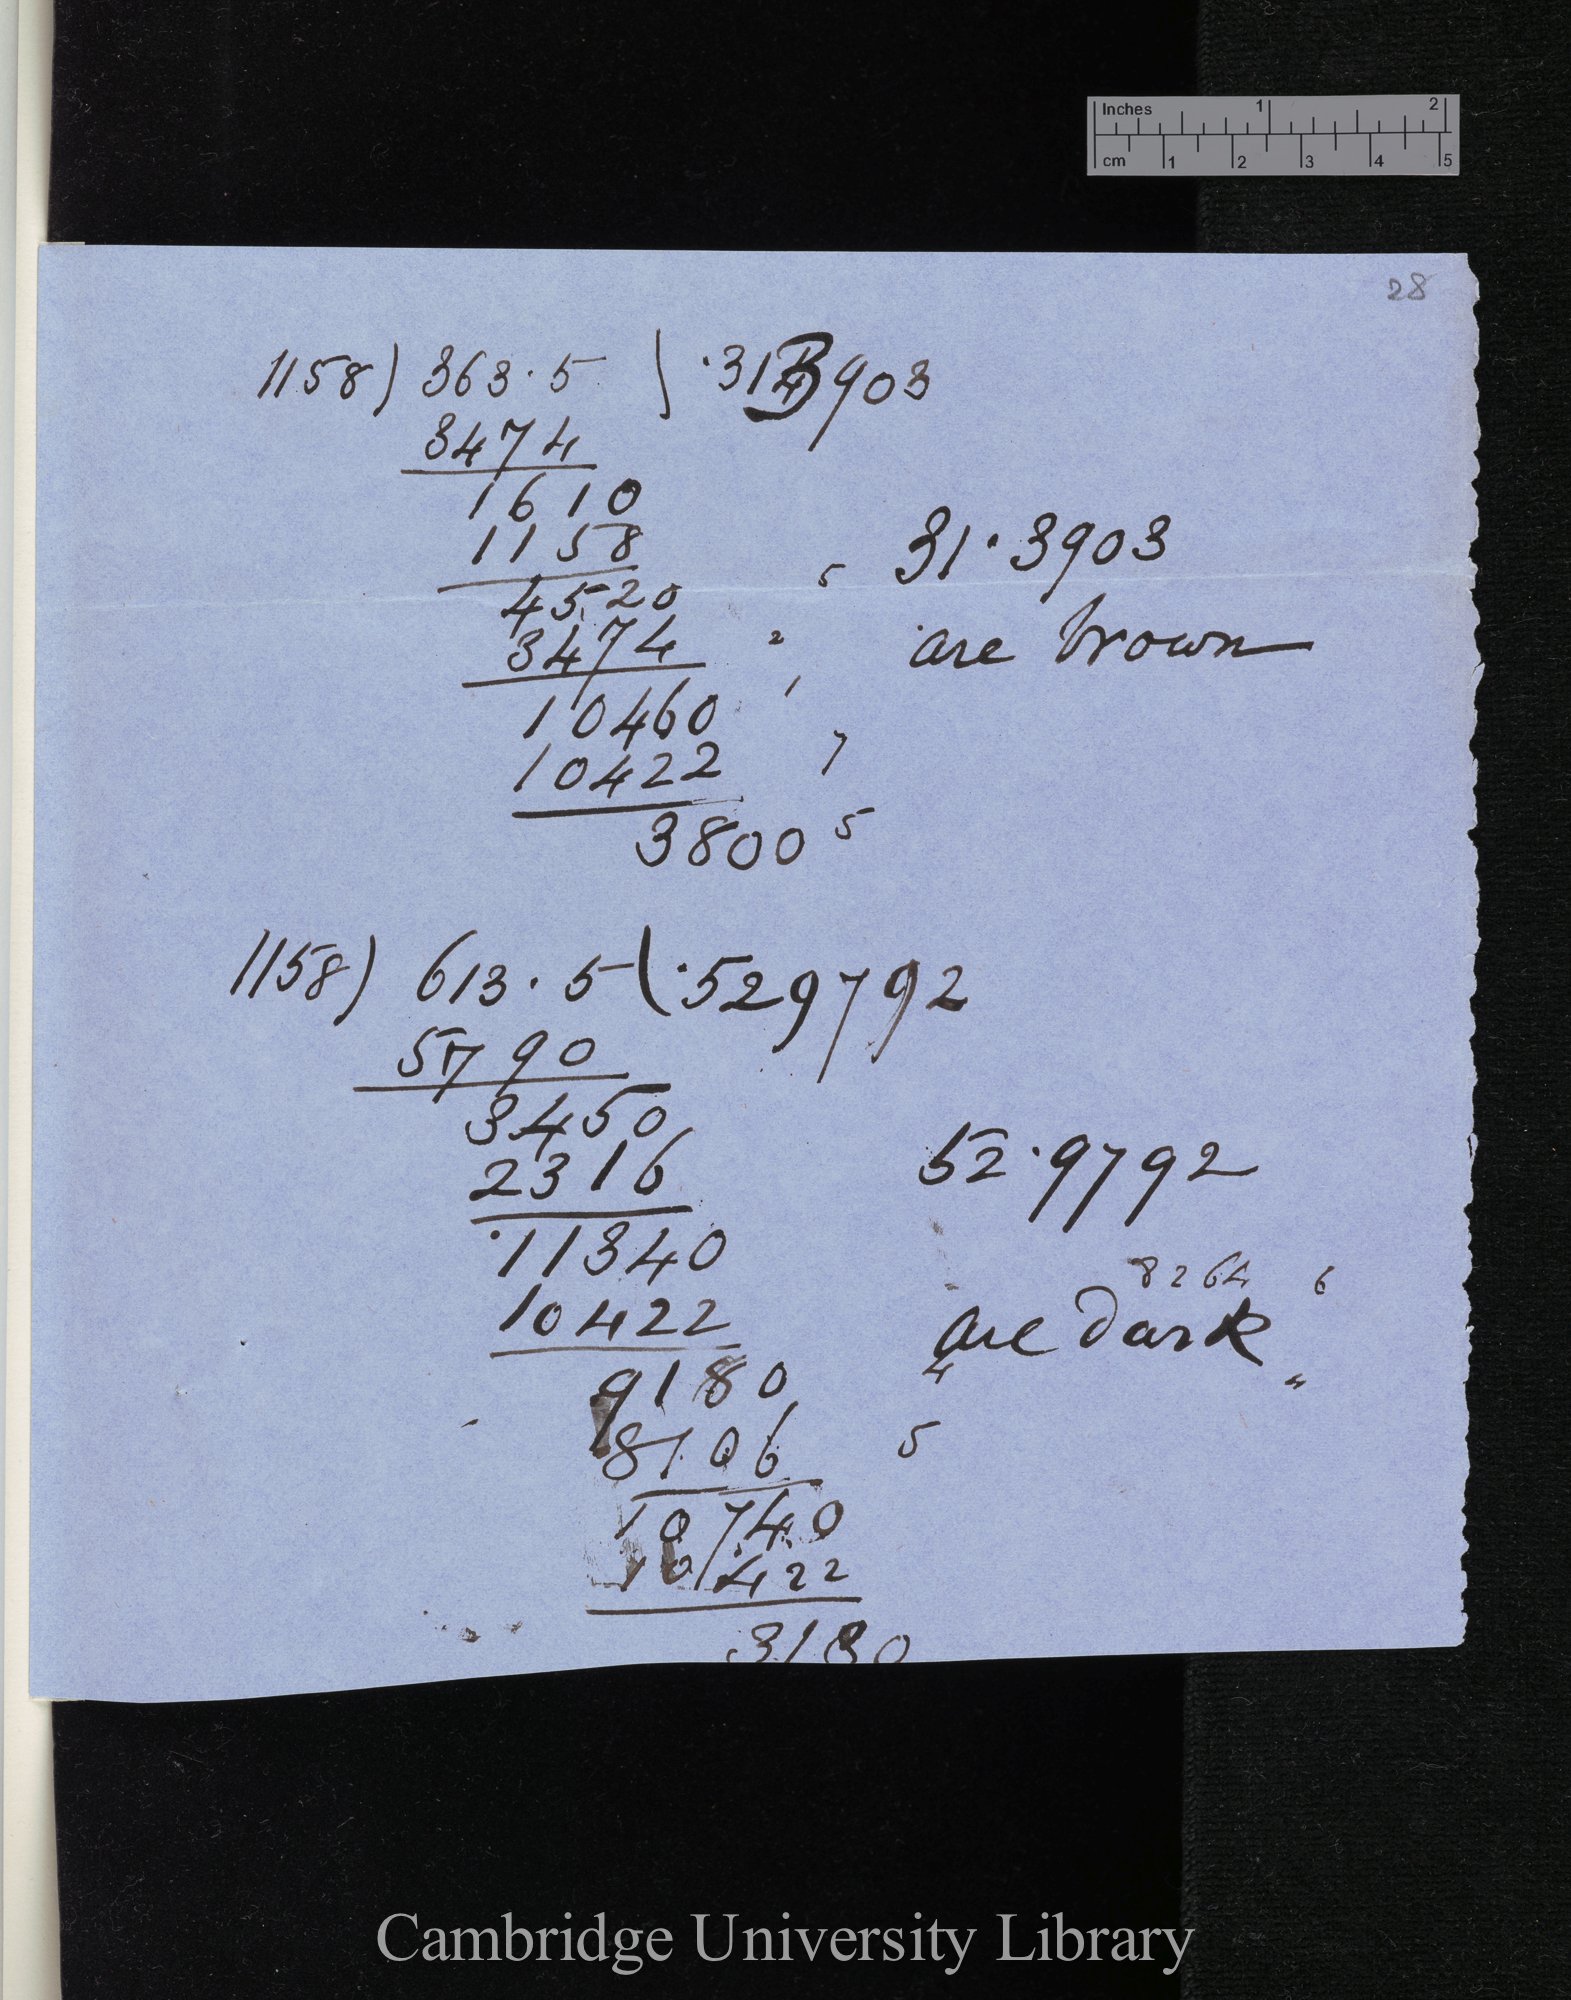 Inches 1 2
cm 1 2 3 4 5
28
1158) 363.5 ) .313903
3474
1610
1158
4520
3474
10460
10422
3800
5
2
1
7
5
31.3903
are brown
1158) 613.5 ( .529792
5790
3450
2316
11340
10422
9180
8106
10740
10422
3180
52.9792
8264 6
are dark
4 "
5
Cambridge University Library